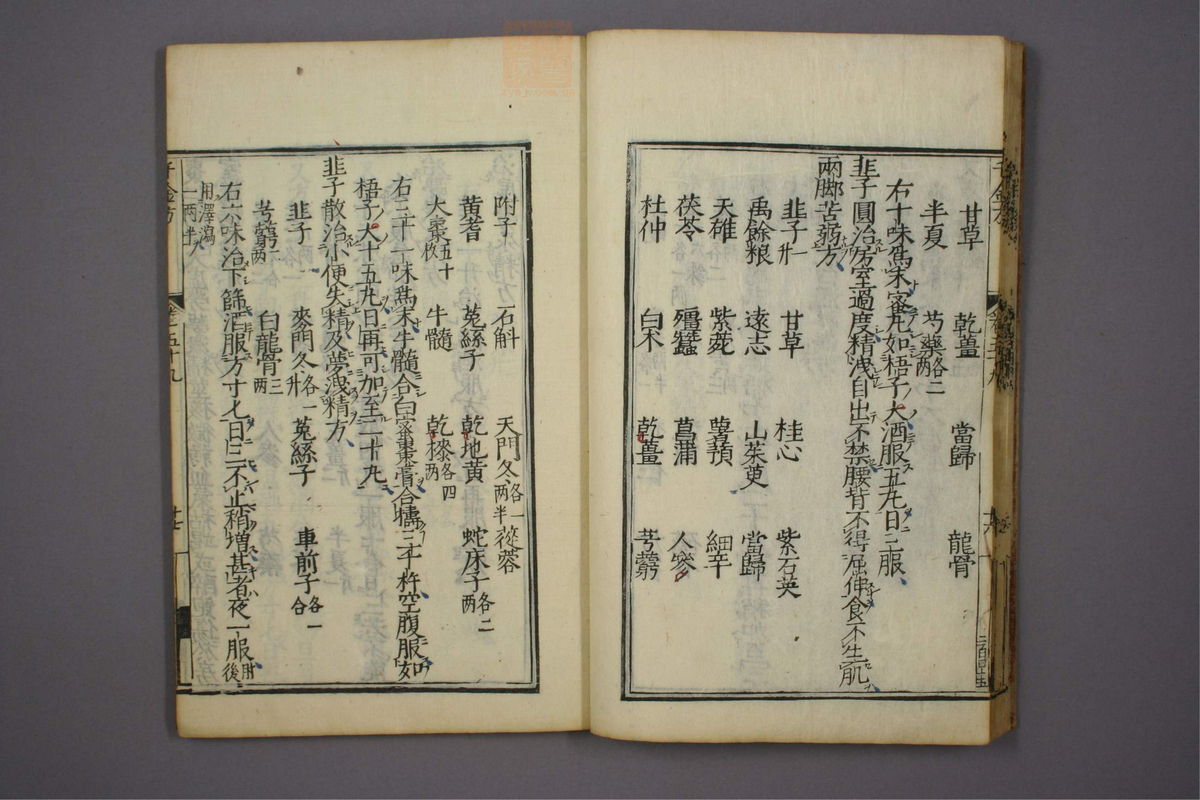 甘草 乾薑 當歸 龍骨
半夏 芍藥各二兩
右十味爲末蜜丸如梧子大酒服五丸日三服
韭子圓治房室過度精洩自出不禁腰背不得屈伸食不生肌
兩脚苦弱方
韭子 甘草 桂心 紫石英
禹餘粮 遠志 山茱萸 當歸
天雄 紫菀 薯蕷 細辛
茯苓 殭蠶 菖蒲 人參
杜仲 白朮 乾薑 芎藭
附子 石斛 天門冬各一兩半 蓯蓉
黄耆 菟絲子 乾地黄 蛇床子各二兩
大棗五十枚 牛髓 乾桼各四兩
右三十一味爲末牛髓合白蜜棗膏合擣三千杵空腹服如
梧子大十五丸日再可加至二十丸
韭子散治小便失精及夢洩精方
韭子 麥門冬各一 菟絲子 車前子各一合
芎藭二兩 白龍骨三兩
右六味治下篩酒服方寸匕日三不止稍増甚者夜一服肘後
用澤瀉一兩半
千金方